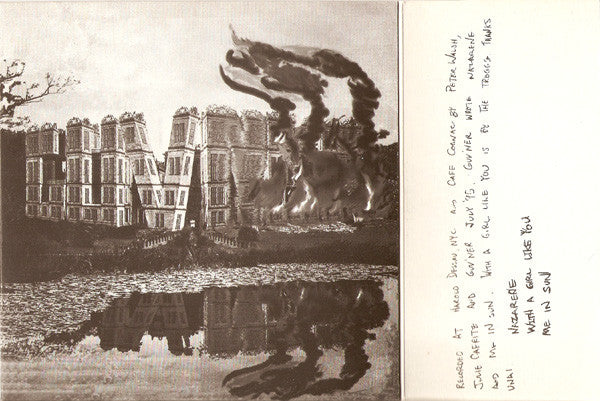 RECORDED AT HAROLD DESSAU NYC AND CAFE COGNAC BY PETER WALSH,
JULIE CAFRITZ AND GUV'NER JULY '95. GUV'NER WROTE NAZARENE
AND ME IN SUN. WITH A GIRL LIKE YOU IS BY THE TROGGS THANKS
NAZARENE
WITH A GIRL LIKE YOU
ME IN SUN